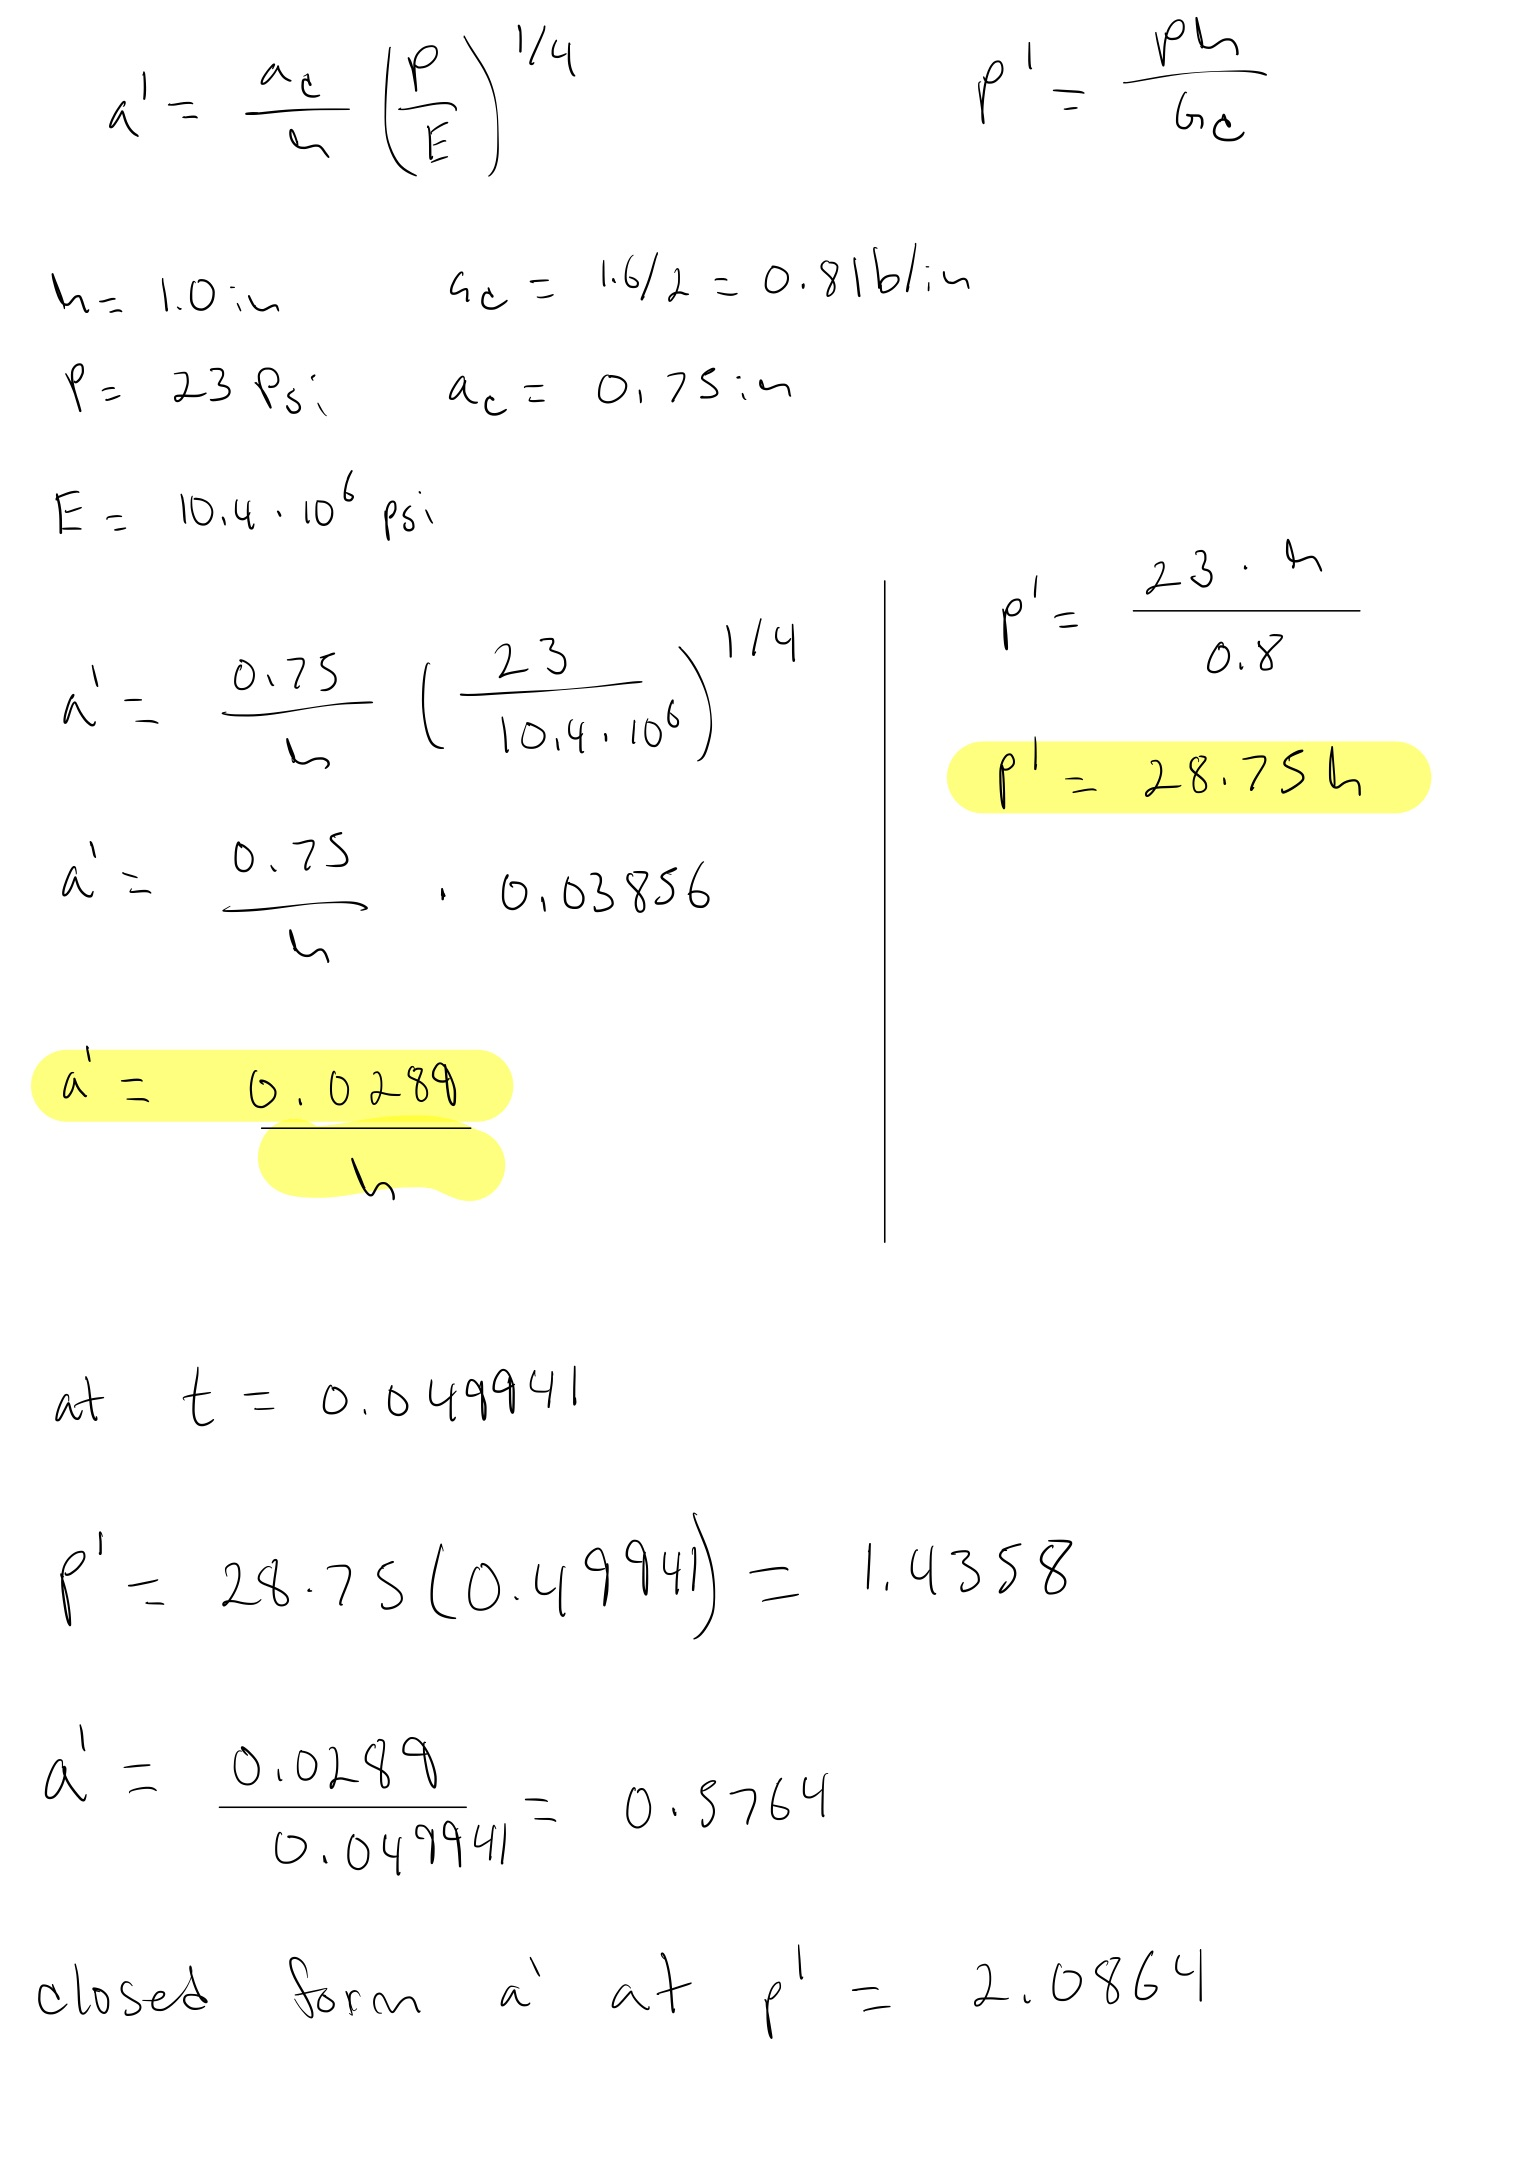 a' = a_c/h (P/E)^1/4    p' = Ph/G_c
h = 1.0 in    G_c = 1.6/2 = 0.8 lb/in
P = 23 Psi    a_c = 0.75 in
E = 10.4 · 10^6 psi
p' = 23 · h / 0.8
a' = 0.75/h (23/10.4 · 10^6)^1/4
p' = 28.75 h
a' = 0.75/h · 0.03856
a' = 0.0289/h
at t = 0.049941
p' = 28.75 (0.49941) = 1.4358
a' = 0.0289/0.049941 = 0.5764
closed form a' at p' = 2.0864